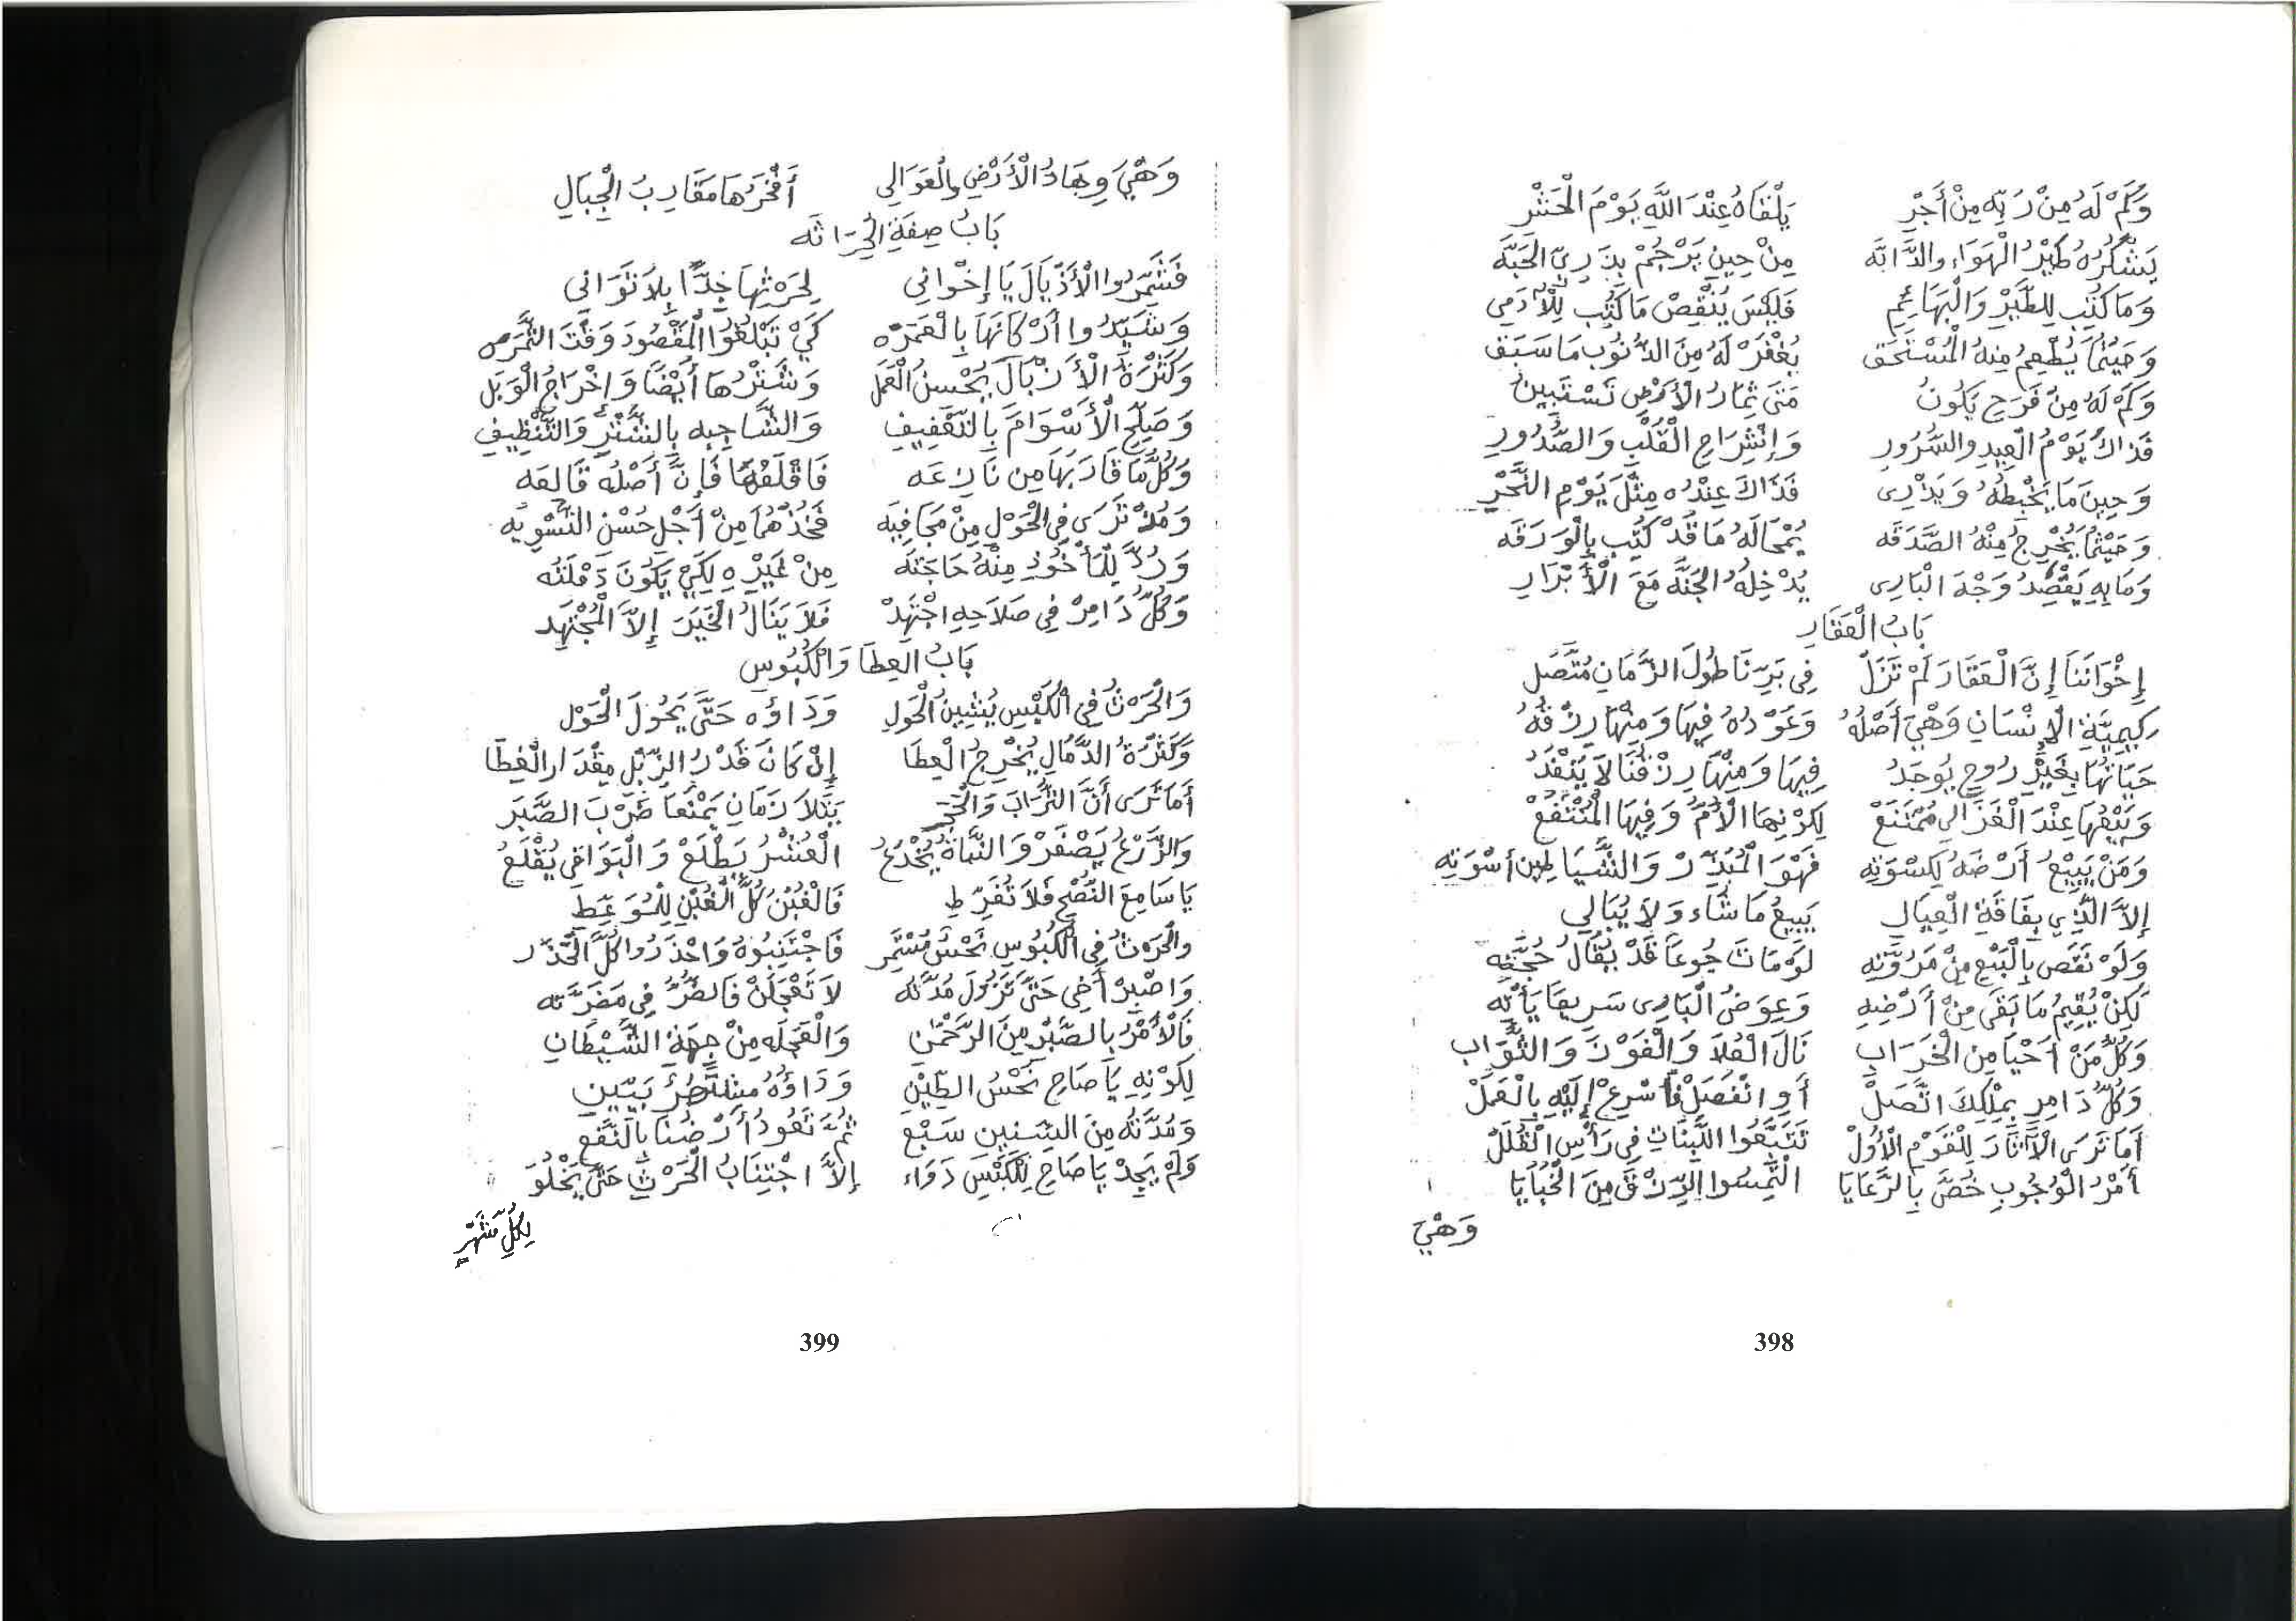 وَكَمْ لَهُ مِنْ رَبِّهِ مِنْ أَجْرِ يَلْقَاهُ عِنْدَ اللَّهِ يَوْمَ الْحَشْرِ
يَشْكُرُهُ طَيْرُ الْهَوَاءِ والدَّابَّه مِنْ حِينِ يَرْجُمْ بِذَرِيِّ الْحَبَّه
وَمَا كُتِب لِلطَّيْرِ وَالْبَهَائِمِ فَلَيْسَ يُنْقِصْ مَا كُتِب لِلْآدَمِي
وَحَيْثُمَا يُطْعِمُ مِنهُ الْمُسْتَحَق يُغْفَرْ لَهُ مِنَ الذُّنُوبِ مَا سَبَق
وَكَمْ لَهُ مِنْ فَرَحٍ يَكُونُ مَتَى ثِمَارُ الْأَرْضِ تَسْتَبِينُ
فَذَاكَ يَوْمُ الْعِيدِ والسُّرُورِ وَإِنْشِرَاحِ الْقَلْبِ وَالصُّدُورِ
وَحِينَ مَا يَخْبِطُهُ وَيَذْرِى فَذَاكَ عِنْدُه مِثْلَ يَوْمِ النَّحْرِ
وَحَيْثُمَا يُخْرِجُ مِنْهُ الصَّدَقَه يُمْحَا لَهُ مَا قَدْ كُتِب بِالْوَرَقَه
وَمَا بِهِ يَقْصِدُ وَجْهَ الْبَارِى يُدْخِلْهُ الجَنَّه مَعَ الْأَبْرَارِ
بَابُ الْعَقَارِ
إِخْوَانَنَا إِنَّ الْعَقَارَ لَمْ تَزَلْ فِى بَرِّنَا طُولَ الزَّمَانِ مُتَّصَل
كِيمِيَّةِ الْإنْسَانِ وَهْيَ أَصْلُهُ وَعَوْدُهُ فِيهَا وَمِنْهَا رِزْقُهُ
حَيَاتُهَا بِغَيْرِ رُوحٍ يُوجَدُ فِيهَا وَمِنْهَا رِزْقُنَا لَا يَنْفَدُ
وَبَيْعُهَا عِنْدَ الْغَزَالِي مُمْتَنَعْ لِكَوْنِهَا الْأُمُّ وَفِيهَا الْمُنْتَفَعْ
وَمَنْ يَبِيْعُ أَرْضَهُ لِكِسْوَتِه فَهْوَ الْمُبَذِّرْ وَالشَّيَاطِين أسْوَتِه
إِلاَّ الَّذِي بِفَاقَةِ الْعِيَالِ يَبِيعُ مَا شَاء وَلاَ يُبَالِي
وَلَوْ نَقَص بِالْبَيْعِ مِنْ مَرُوَّتِه لَوْ مَاتَ جُوعاً قَدْ يُقَالُ حُجَّتِه
لَكِنْ يُقِيمُ مَا بَقَى مِنْ أَرْضِهِ وَعِوَضُ الْبَارِى سَرِيعًا يَأْتِه
وَكُلُّ مَنْ أَحْيَا مِنَ الْخَرَابِ نَالَ الْعُلاَ وَالْفَوْزَ وَالثَّوَاب
وَكُلُّ دَامِرٍ بِمِلْكِكَ اتَّصَلْ أَوِ انْفَصَلْ فَأَسْرِعْ إِلَيْهِ بِالْعَمَلْ
أَمَا تَرَى الْآثَارَ لِلْقَوْمِ الْأُوَلْ تَتَبَّعُوا اللَّبِنَاتِ فِى رَأْسِ الْقُلَلْ
أَمْرُ الْوُجُوبِ خُصَّ بِالرَّعَايَا الْتَمِسُوا الرِّزْقَ مِنَ الْخَبَايَا
وَهْيَ
398
وَهْيَ وِهَادُ الْأَرْضِ والْعَوَالِي أَفْخَرُهَا مَقَارِبُ الْجِبَالِ
بَابُ صِفَةِ الْحِرَاثَه
فَشَمِّرُوا الْأَذْيَالَ يَا إِخْوَانِي لِحَرْثِهَا جِدًّا بِلاَ تَوَانِي
وَشَيِّدُوا أَرْكَانَهَا بِالْعَمَرَه كَيْ تَبْلُغُوا الْمَقْصُودَ وَقْتَ الثَّمَرَه
وَكَثْرَةُ الْأَزْبَالَ بِحْسنُ الْعَمَل وَشَتْرُهَا أَيْضًا وَإخْرَاجُ الْوَبَل
وَصَلِّحِ الْأَسْوَامَ بِالتَّقْفِيفِ وَالشَّاجِبه بِالشَّتْرِ وَالتَّنْظِيفِ
وَكُلُّ مَا قَارَبَهَا مِن نَازِعَه فَاقْلَعْهَا فَإِنَّ أَصْلُه قَالعَه
وَمُذْ تَرَى فِى الْحَوْلِ مِنْ مَجَافِيَه فَخُذْهُمَا مِنْ أَجْلِ حُسْنِ التَّسْوِيَه
وَرُدَّ لِلْمَأْخُوذِ مِنْهُ حَاجَتَه مِنْ غَيْرِه لِكَيْ يَكُونَ دَمْلَتُه
وَكُلُّ دَامِرْ فِى صَلاَحِهِ اجْتَهِدْ فَلاَ يَنَالُ الْخَيْرَ إِلاَّ الْمُجْتَهِد
بَابُ العِطَا وَالْكُبُوس
وَالْحَرْثُ فِي الْكَبْسِ يُشِينُ الْحَولِ وَدَاؤُه حَتَّى يَحُولَ الْحَوْل
وَكَثْرَةُ الدَّمَالِ يُخْرِجُ الْعِطَا إِنْ كَانَ قَدْرُ الزِّبْلِ مِقْدَارِ الْغِطَا
أَمَا تَرَى أَنَّ التُّرَابَ وَالْحَجَر بَتَّلاَ زَمَانِ يَمْنَعَا ضَرْبَ الصَّبَر
وَالزَّرْعُ يَصْفَرْ وَالنَّبَاةُ يُخْدَعُ الْعُشْرُ يَطْلَعْ وَالْبَوَاقى يُقْلَعُ
يَا سَامِعَ النُّصْحِ فَلاَ تُفَرِّطِ فَالْغُبْنُ كُلُّ الْغُبْنِ
والْحَرْثُ فِى الْكُبُوسِ نَحْسٌ مُسْتَمِر فَاجْتَنِبُوهُ وَاحْذَرُوا كُلَّ الْحَذَر
وَاصْبِرْ أَخِى حَتَّى تَزُولَ مُدَّتُه لاَ تَعْجَلَنْ فَالضُّرُّ فِى مَضَرَّتِه
فَالْأَمْرُ بِالصَّبْرِ مِنَ الرَّحْمٰنِ وَالْعَجَلَه مِنْ جِهَةِ الشَّيْطَانِ
لِكَوْنِهِ يَا صَاحِ نَحْسُ الطِّيْنِ وَدَاؤُهُ بَيِّينِ
وَمُدَّتُه مِنَ السِّنِينِ سَبْعِ ثُمَّ تَعُودُ أَرْضُنَا بِالنَّفْعِ
وَلَمْ يَجِدْ يَا صَاحِ لِلْكَبْسِ دَوَاء إِلاَّ اجْتِنَابُ الْحَرْثِ حَتَّى يَخْلُوَ
لِكُلِّ شَهْرٍ
399